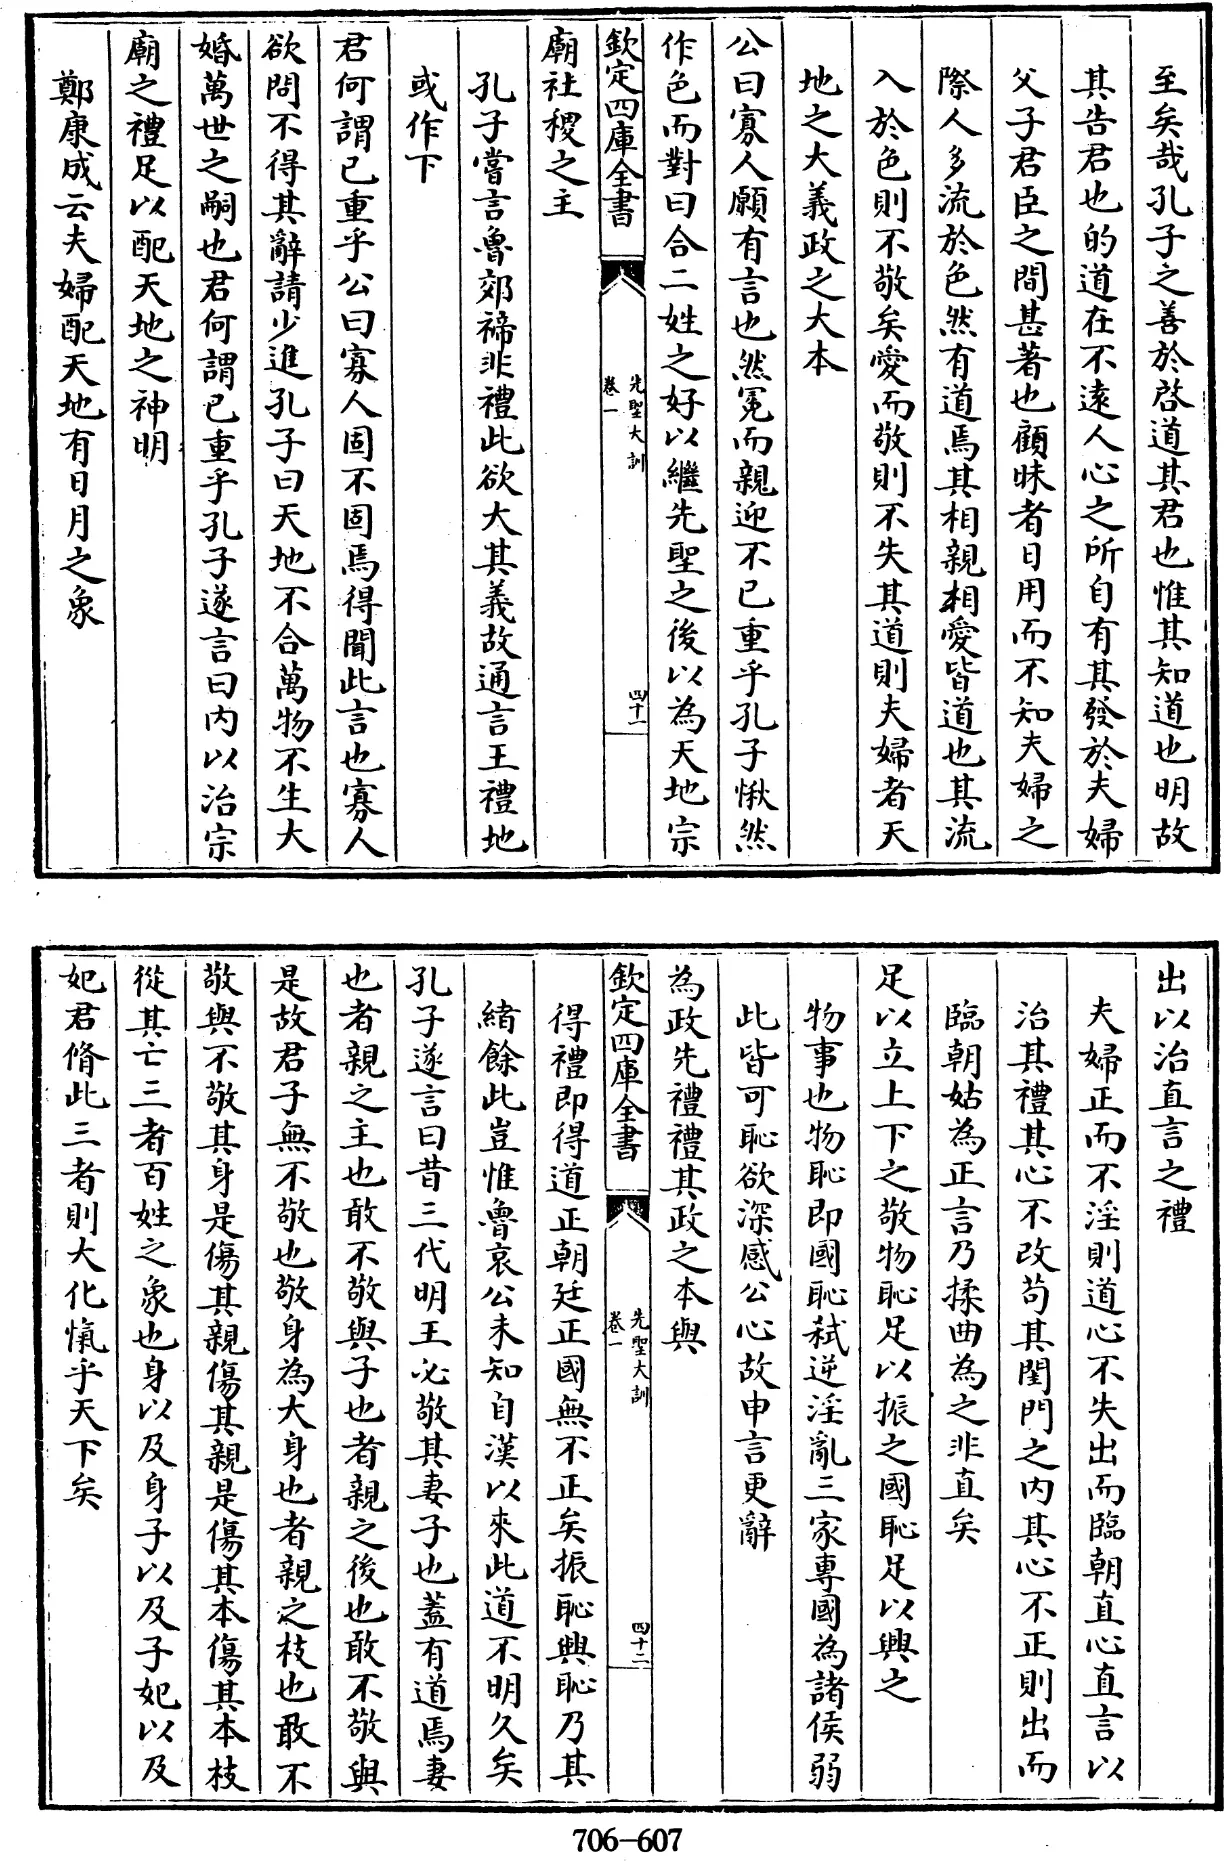 至矣哉孔子之善於啓道其君也惟其知道也明故
其告君也的道在不遠人心之所自有其發於夫婦
父子君臣之間甚著也顧昧者日用而不知夫婦之
際人多流於色然有道焉其相親相愛皆道也其流
入於色則不敬矣愛而敬則不失其道則夫婦者天
地之大義政之大本
公曰寡人願有言也然冕而親迎不已重乎孔子愀然
作色而對曰合二姓之好以繼先聖之後以為天地宗
欽定四庫全書
先聖大訓
卷一
四十一
廟社稷之主
孔子嘗言魯郊禘非禮此欲大其義故通言王禮地
或作下
君何謂已重乎公曰寡人固不固焉得聞此言也寡人
欲問不得其辭請少進孔子曰天地不合萬物不生大
婚萬世之嗣也君何謂已重乎孔子遂言曰内以治宗
廟之禮足以配天地之神明
鄭康成云夫婦配天地有日月之象
出以治直言之禮
夫婦正而不淫則道心不失出而臨朝直心直言以
治其禮其心不改苟其閨門之内其心不正則出而
臨朝姑為正言乃揉曲為之非直矣
足以立上下之敬物恥足以振之國恥足以興之
物事也物恥即國恥弑逆淫亂三家專國為諸侯弱
此皆可恥欲深感公心故申言更辭
為政先禮禮其政之本與
欽定四庫全書
先聖大訓
卷一
四十二
得禮即得道正朝廷正國無不正矣振恥興恥乃其
緒餘此豈惟魯哀公未知自漢以來此道不明久矣
孔子遂言曰昔三代明王必敬其妻子也蓋有道焉妻
也者親之主也敢不敬與子也者親之後也敢不敬與
是故君子無不敬也敬身為大身也者親之枝也敢不
敬與不敬其身是傷其親傷其親是傷其本傷其本枝
從其亡三者百姓之象也身以及身子以及子妃以及
妃君脩此三者則大化愾乎天下矣
706-607